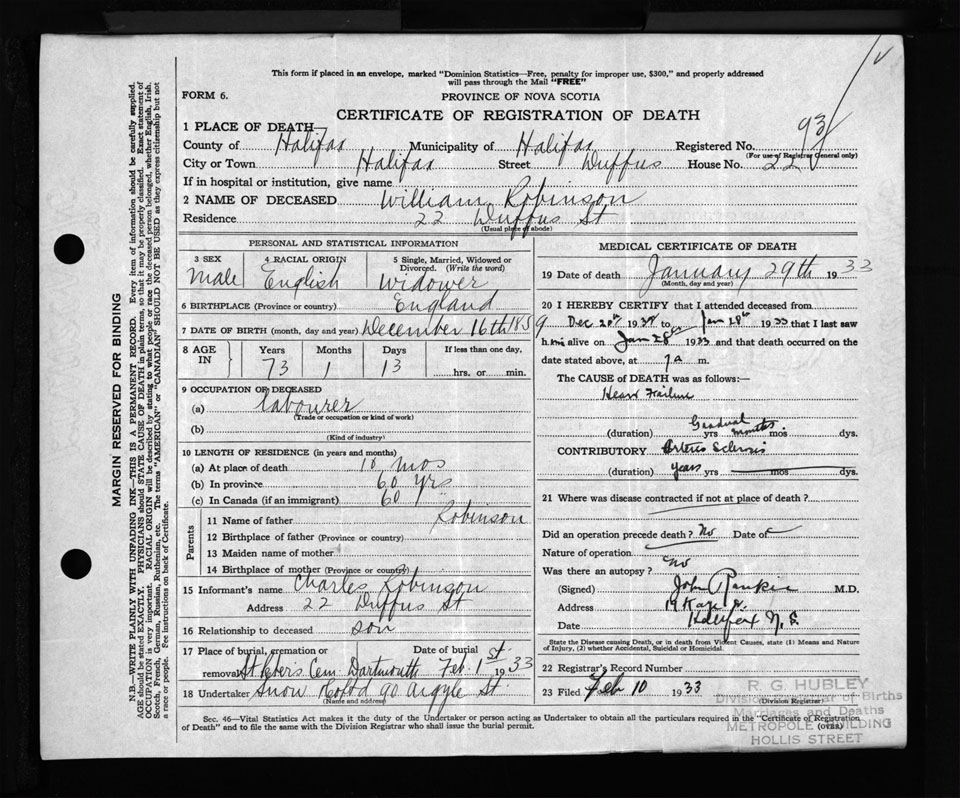 This form if placed in an envelope, marked "Dominion Statistics—Free, penalty for improper use, $300," and properly addressed
will pass through the Mail "FREE"
FORM 6.
PROVINCE OF NOVA SCOTIA
CERTIFICATE OF REGISTRATION OF DEATH
93
1 PLACE OF DEATH—
County of Halifax Municipality of Halifax Registered No.
(For use of Registrar General only)
City or Town Halifax Street Duffus House No. 22
If in hospital or institution, give name
2 NAME OF DECEASED William Robinson
Residence 22 Duffus St
(Usual place of abode)
PERSONAL AND STATISTICAL INFORMATION
3 SEX 4 RACIAL ORIGIN 5 Single, Married, Widowed or
Divorced. (Write the word)
Male English Widower
6 BIRTHPLACE (Province or country) England
7 DATE OF BIRTH (month, day and year) December 16th 1859
8 AGE IN Years Months Days If less than one day,
73 1 13 hrs. or min.
9 OCCUPATION OF DECEASED
(a) Labourer
(Trade or occupation or kind of work)
(b)
(Kind of industry)
10 LENGTH OF RESIDENCE (in years and months)
(a) At place of death 10 mos
(b) In province 60 yrs
(c) In Canada (if an immigrant) 60 "
Parents
11 Name of father Robinson
12 Birthplace of father (Province or country)
13 Maiden name of mother
14 Birthplace of mother (Province or country)
15 Informant's name Charles Robinson
Address 22 Duffus St
16 Relationship to deceased son
17 Place of burial, cremation or Date of burial
removal St Peters Cem. Dartmouth Feb. 1st 1933
18 Undertaker Snow 90 Argyle St
(Name and address)
MEDICAL CERTIFICATE OF DEATH
19 Date of death January 29th 1933
(Month, day and year)
20 I HEREBY CERTIFY that I attended deceased from
Dec 20th 1932 to Jan 28th 1933 that I last saw
him alive on Jan 28 1933 and that death occurred on the
date stated above, at 7 a m.
The CAUSE OF DEATH was as follows:—
Heart Failure
Gradual
(duration) yrs months mos dys.
CONTRIBUTORY Arterio Sclerosis
(duration) years yrs mos dys.
21 Where was disease contracted if not at place of death?
Did an operation precede death? No Date of
Nature of operation
Was there an autopsy? No
(Signed) John Rankin M.D.
Address
Date Halifax N.S.
State the Disease causing Death, or in death from Violent Causes, state (1) Means and Nature
of Injury, (2) whether Accidental, Suicidal or Homicidal.
22 Registrar's Record Number
23 Filed Feb 10 1933
(Division Registrar)
R. G. HUBLEY
Division Registrar of Births
Marriages and Deaths
METROPOLE BUILDING
HOLLIS STREET
Sec. 46—Vital Statistics Act makes it the duty of the Undertaker or person acting as Undertaker to obtain all the particulars required in the "Certificate of Registration
of Death" and to file the same with the Division Registrar who shall issue the burial permit. (over)
MARGIN RESERVED FOR BINDING
N.B.—WRITE PLAINLY WITH UNFADING INK—THIS IS A PERMANENT RECORD. Every item of information should be carefully supplied.
AGE should be stated EXACTLY. PHYSICIANS should STATE CAUSE OF DEATH in plain terms, so that it may be properly classified. Exact statement of
OCCUPATION is very important. RACIAL ORIGIN will be described by stating to what people or race the deceased person belonged, whether English, Irish,
Scotch, French, German, Russian, Ruthenian, etc. The terms "AMERICAN" or "CANADIAN" SHOULD NOT BE USED as they express citizenship but not
a race or people. See instructions on back of Certificate.